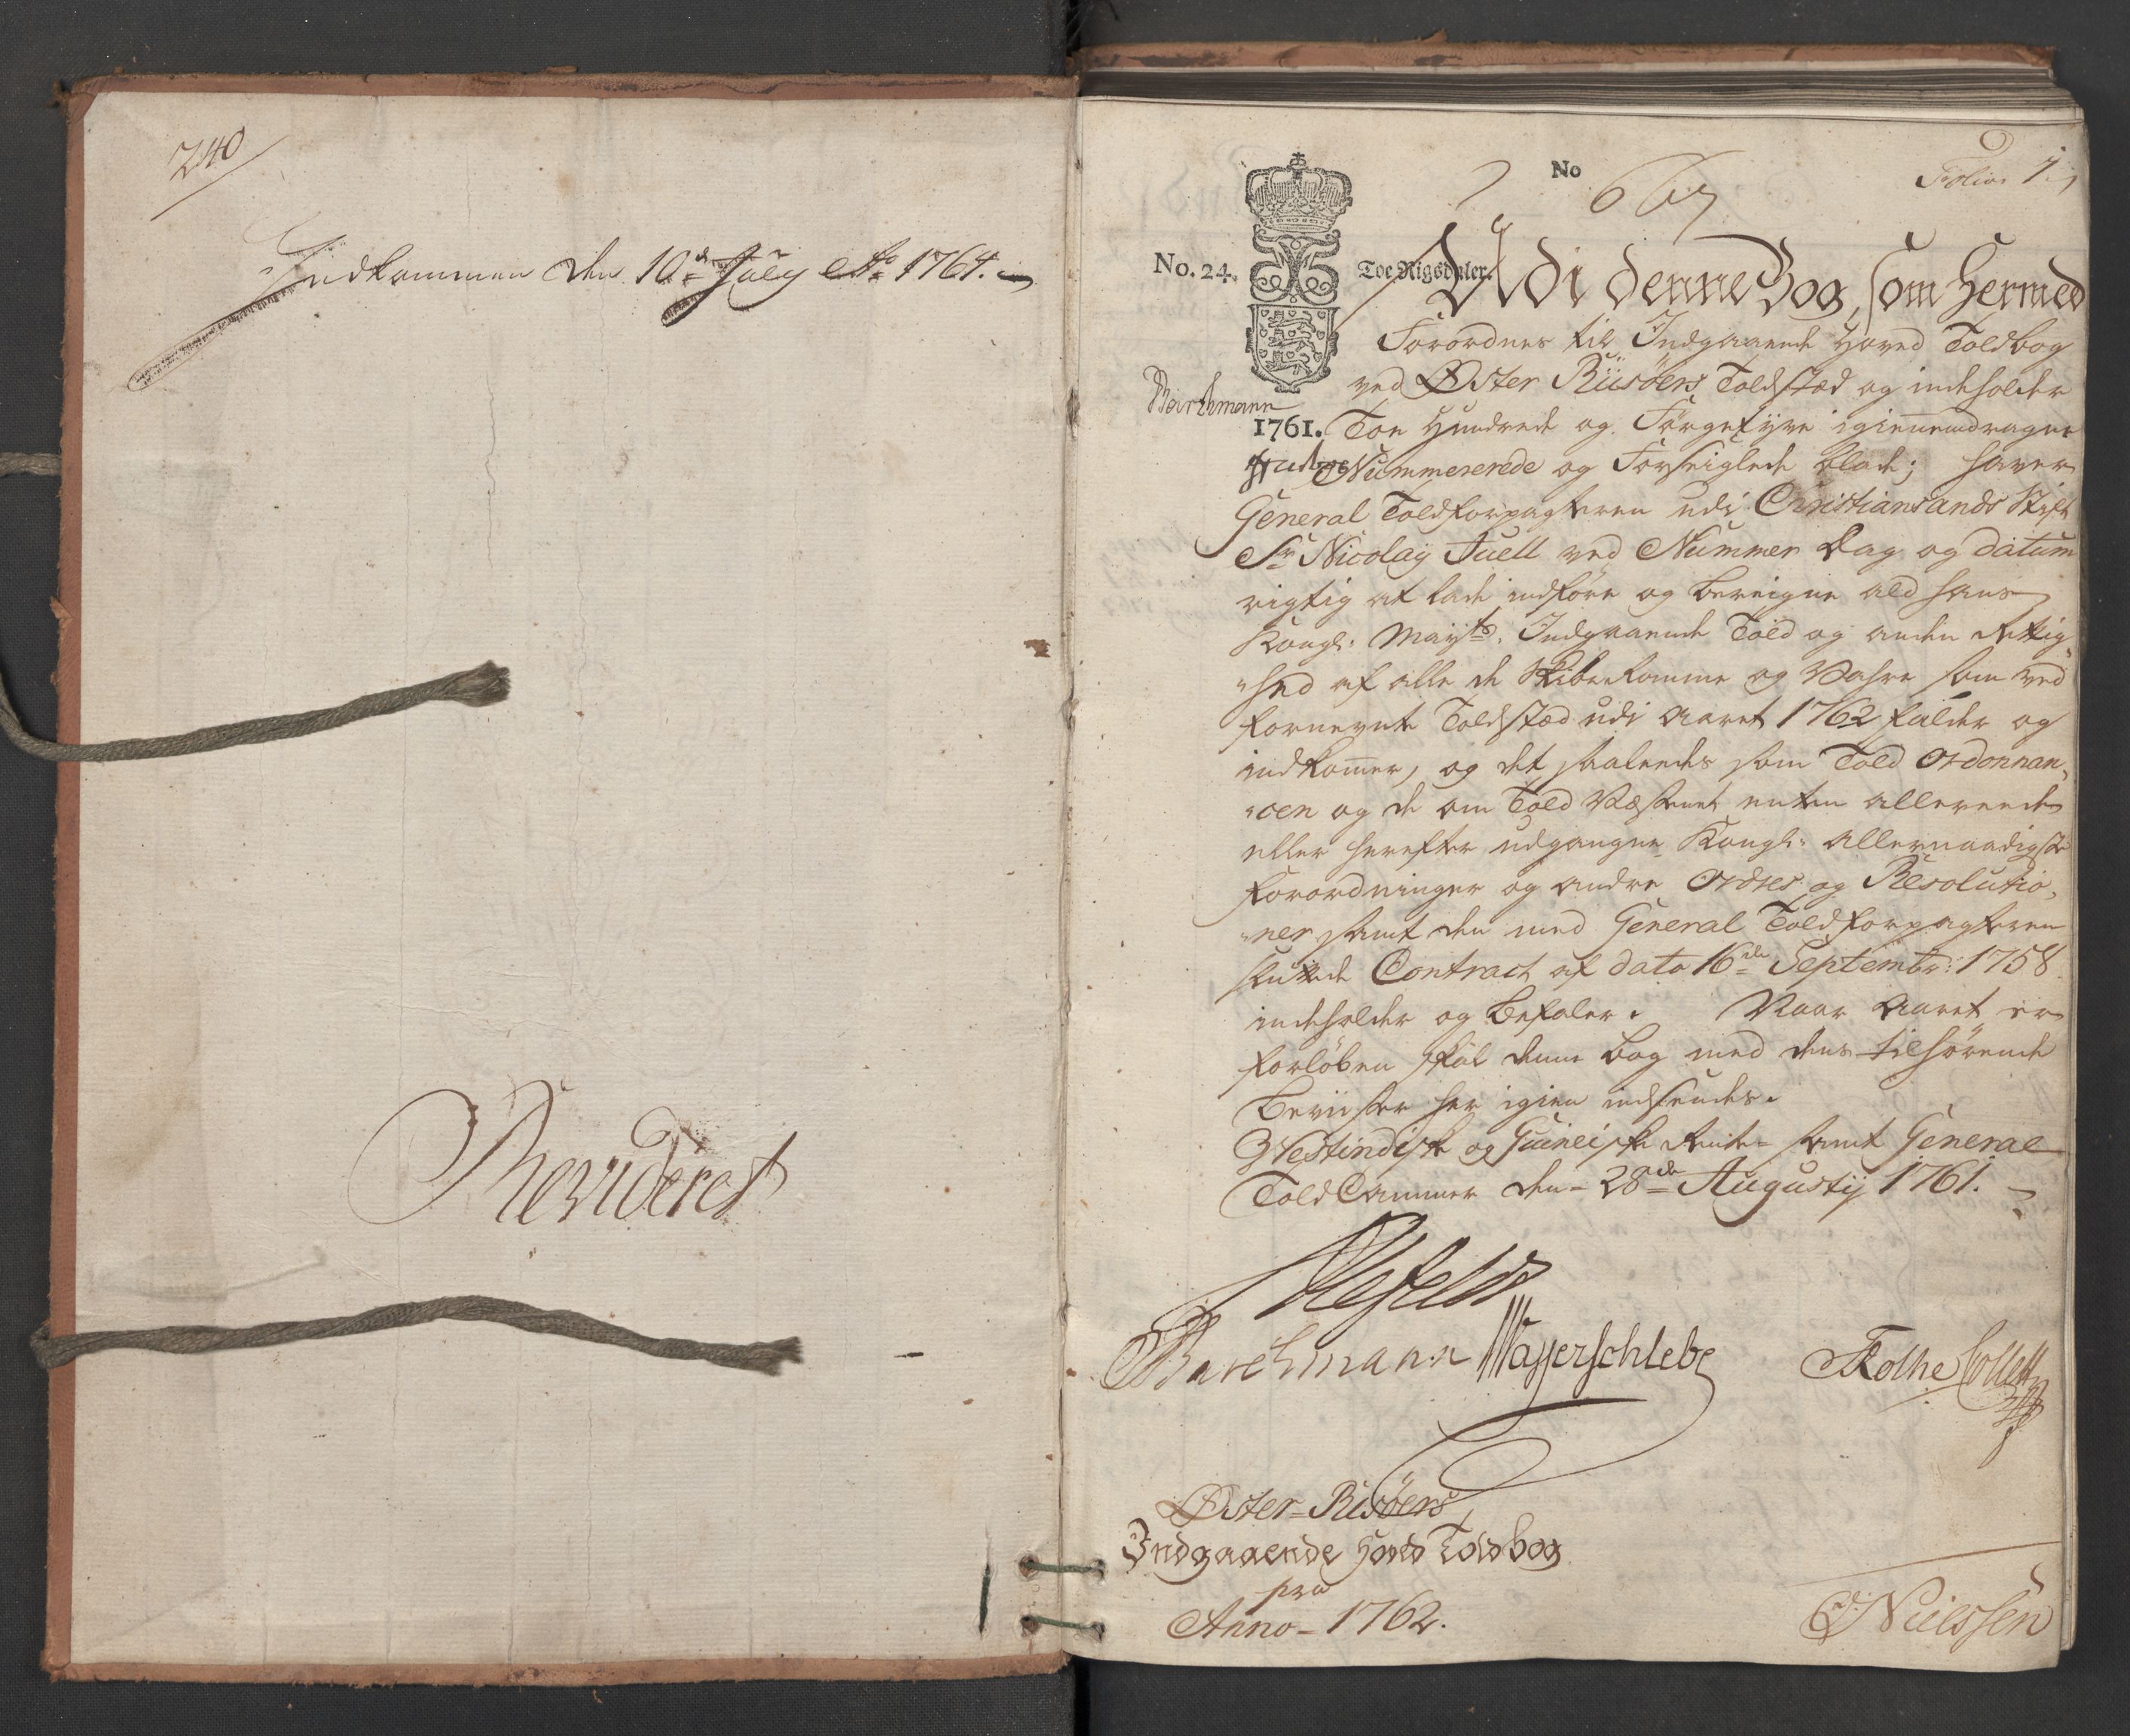 240
Indkommen den 10de July Ao 1764.
Revideret
No
667
Folio 1.
No. 24.
Toe Rigsdaler.
Udi denne Bog, som Hermed
Forordnes til Indgaaende Hoved Toldbog
ved Øster Riisöers Toldstæd og indeholder
Barchmann
1761.
Toe Hundrede og Förgetyve igiennemdragne
Nummererede og Forseiglede blade; haver
General Toldforpagteren udi Christiansands Stift
Sr Nicolaÿ Juell ved Nummer Dag og datum
rigtig at lade indföre og beregne ald hans
Kongl: Mayts. Indgaaende Told og anden Rettig„
„hed af alle de Skibe komme og Vahre som ved
fornevnte Toldstæd udi Aaret 1762 falder og
indkommer, og det saaleedes som Told Ordonnan„
„cen og de om Told Væsenet enten allereede
eller herefter udgangne Kongl: Allernaadigste
Forordninger og andre Ordres og Resolutio„
„ner samt den med General Toldforpagteren
sluttede Contract af dato 16de Septembr: 1758
indeholder og befaler. Naar Aaret er
forlöben skal denne bog med dens tilhörende
beviiser her igien indsendes.
Westindisk og Guineiske Rente- samt General
ToldCammer den 28de Augustij 1761.
Ahlefeldt
Barchmann Wasserschlebe Rothe Collett
Øster-Riisöers
Indgaaende Hoved Toldbog
pro
Anno 1762.
Nielssen